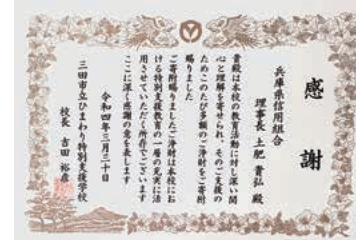 感謝
兵庫県信用組合
理事長 土肥 貴弘 殿
貴殿は本校の教育活動に対し深い関
心と理解を寄せられ、そのご支援の
ためこのたび多額のご浄財をご寄附
賜りました
ご寄附賜りましたご浄財は本校にお
ける特別支援教育の一層の充実に活
用させていただく所存でございます
ここに深く感謝の意を表します
令和四年三月三十日
三田市立ひまわり特別支援学校
校長 吉田 裕彦